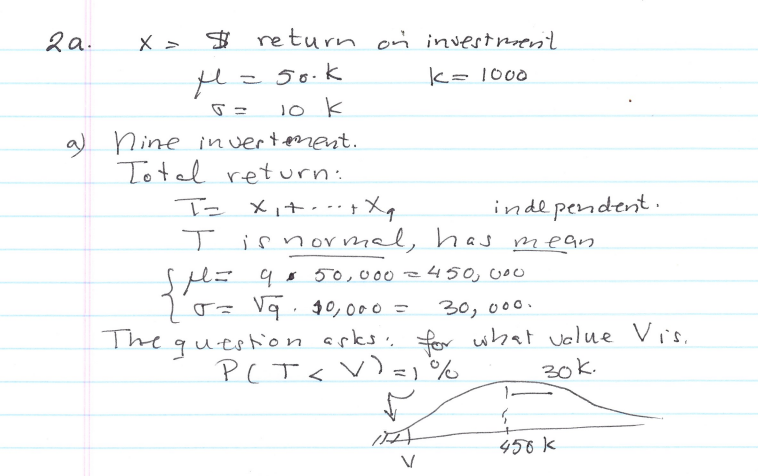 2a. X = $ return on investment
μ = 50.K K = 1000
σ = 10 K
a) Nine investement.
Total return:
T = X₁+····+X₉ independent.
T is normal, has mean
μ = 9 * 50,000 = 450,000
σ = √9 . 10,000 = 30,000.
The question asks: for what value V is.
P(T < V) = 1%
30K.
450 K
V